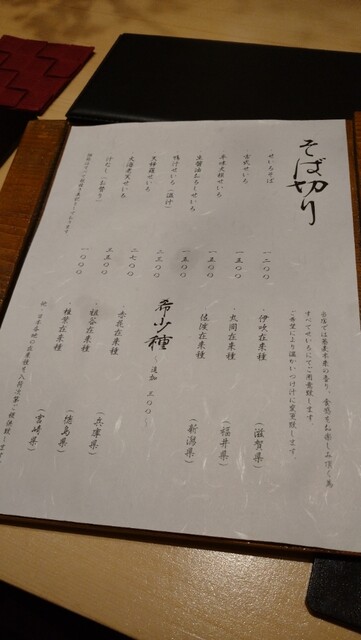 そば切り
当店では蕎麦本来の香り、食感をお楽しみ頂く為
すべてせいろにてご用意致します。
ご希望により温かいつけ汁に変更致します。
せいろそば 一二〇〇
古式せいろ 一五〇〇
辛味大根せいろ 一五〇〇
生醤油おろしせいろ 一五〇〇
鴨汁せいろ（温汁） 二三〇〇
天麩羅せいろ 二七〇〇
大海老天せいろ 三五〇〇
（お替り） 一〇〇〇
希少種 〜追加 三〇〇〜
・伊吹在来種（滋賀県）
・丸岡在来種（福井県）
・佐渡在来種（新潟県）
・赤花在来種（兵庫県）
・祖谷在来種（徳島県）
・椎葉在来種（宮崎県）
他、日本各地の在来種を入荷次第ご提供致します